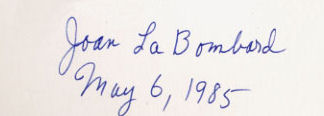 Joan La Bombard
May 6, 1985